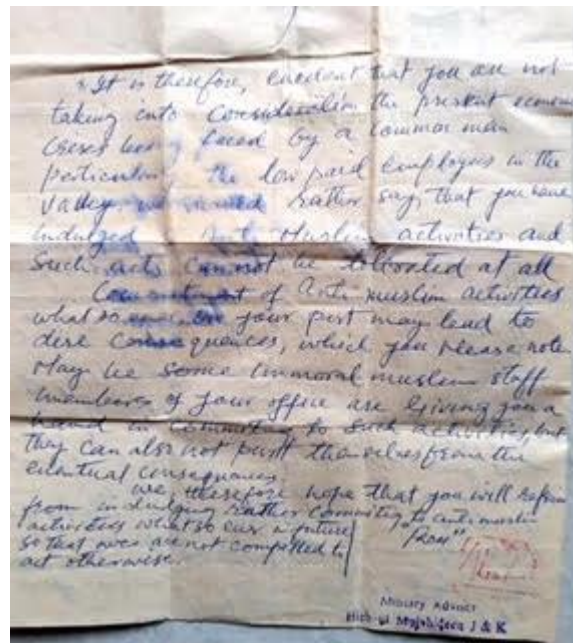 "It is therefore, evident that you are not
taking into consideration the present econom
crises being faced by a common man
perticularly the low paid employees in the
Valley. we rather say that you have
indulged Anti Muslim activities and
Such acts cannot be tolerated at all
Commitment of Anti muslim activities
what so ever on your part may lead to
dire consequences, which you please note
May be some immoral muslim staff
members of your office are giving you a
hand in commit to such activities, but
they can also not themselves from the
eventual consequences
we therefore hope that you will refrain
from indulging rather commiting to anti muslim
activities what so ever in future
so that we are not compelled to
act otherwise.
Military Advisor
Hizb-ul Mujahideen J & K